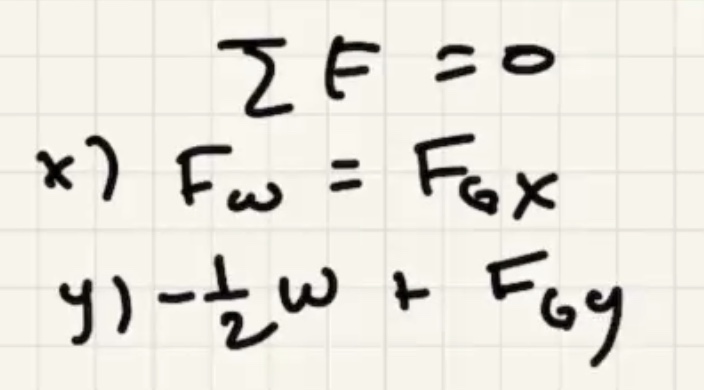 ΣF = 0
x) F_w = F_Gx
y) -½w + F_Gy